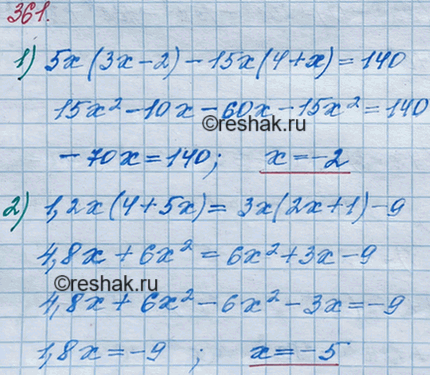 361.
1) 5x(3x-2)-15x(4+x)=140
15x²-10x-60x-15x²=140
©reshak.ru
-70x=140; x=-2
2) 1,2x(4+5x)=3x(2x+1)-9
4,8x+6x²=6x²+3x-9
©reshak.ru
4,8x+6x²-6x²-3x=-9
1,8x=-9 ; x=-5